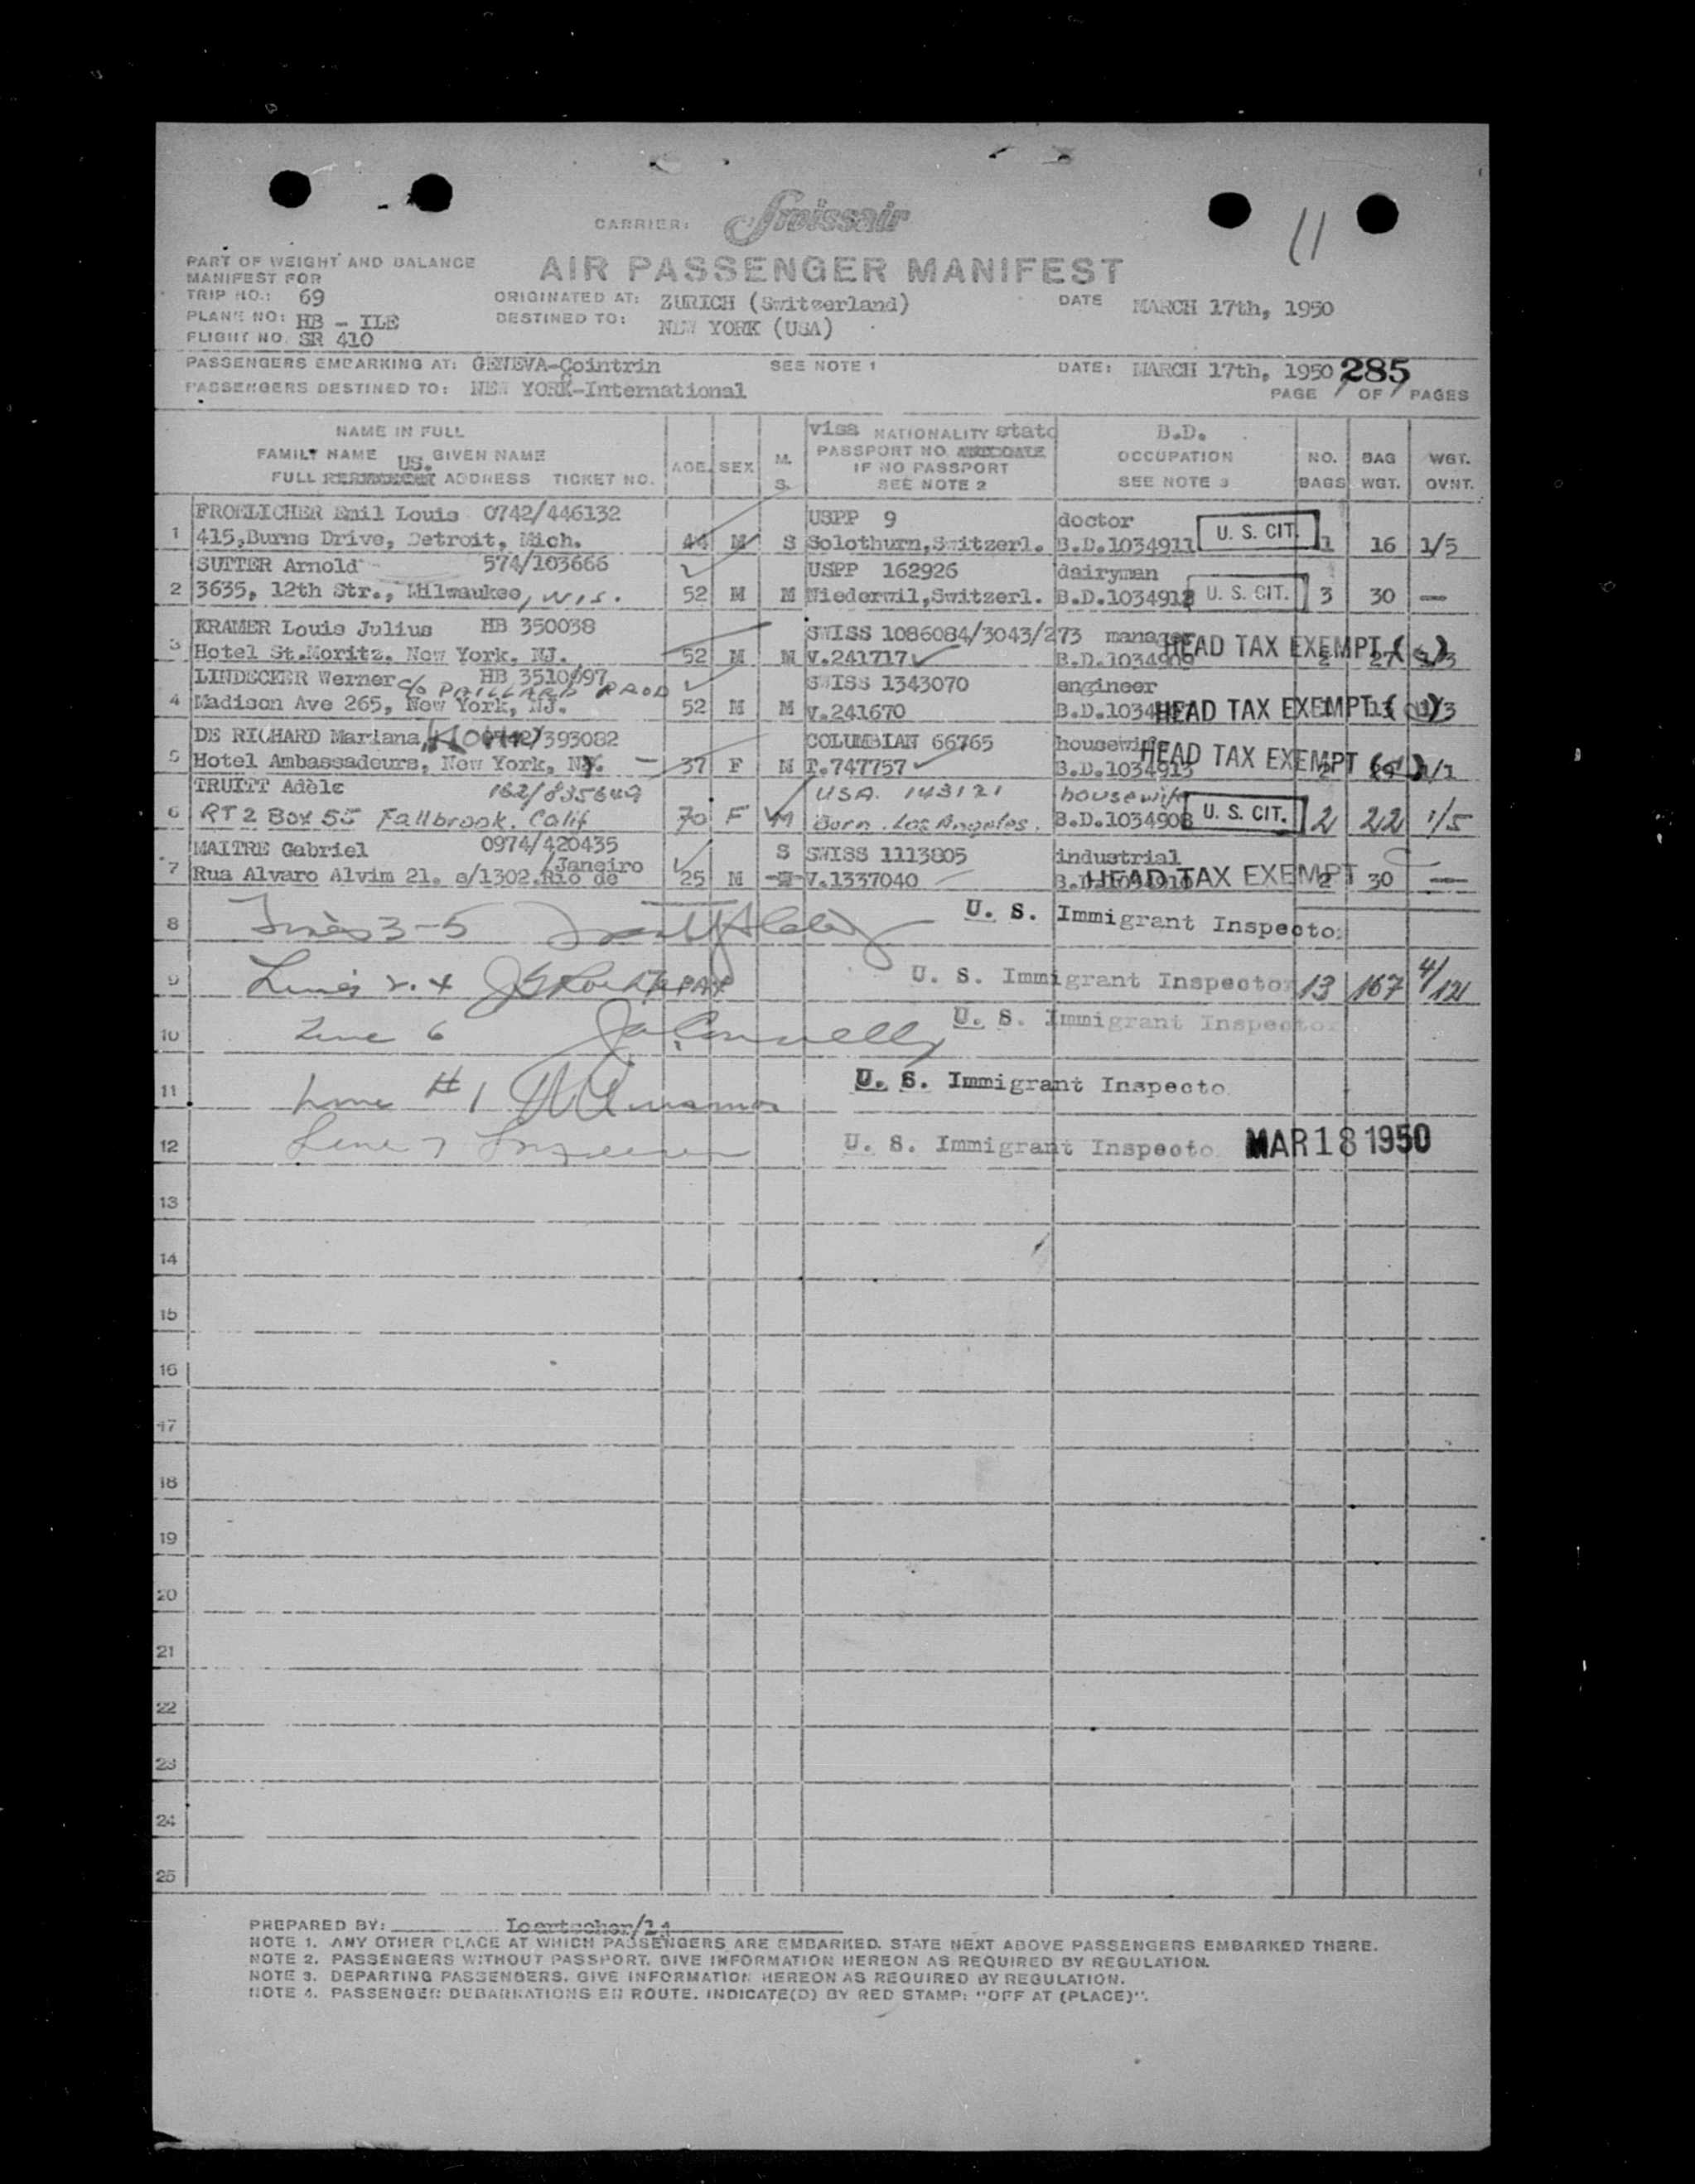 11
CARRIER: Swissair
PART OF WEIGHT AND BALANCE
MANIFEST FOR
AIR PASSENGER MANIFEST
TRIP NO.: 69
ORIGINATED AT: ZURICH (Switzerland)
DATE MARCH 17th, 1950
PLANE NO: HB - ILE
DESTINED TO: NEW YORK (USA)
FLIGHT NO. SR 410
PASSENGERS EMBARKING AT: GENEVA-Cointrin SEE NOTE 1 DATE: MARCH 17th, 1950 285
PASSENGERS DESTINED TO: NEW YORK-International PAGE OF PAGES
NAME IN FULL
FAMILY NAME GIVEN NAME
FULL US. ADDRESS TICKET NO.
AGE SEX M. S.
visa NATIONALITY state
PASSPORT NO.
IF NO PASSPORT
SEE NOTE 2
B.D.
OCCUPATION
SEE NOTE 3
NO. BAGS
BAG WGT.
WGT. OVNT.
FROELICHER Emil Louis 0742/446132 USPP 9 doctor
1 415,Burns Drive, Detroit, Mich. 44 M S Solothurn,Switzerl. B.D.1034911 U. S. CIT. 1 16 1/5
SUTTER Arnold 574/103666 USPP 162926 dairyman
2 3635, 12th Str., Milwaukee, Wis. 52 M M Niederwil,Switzerl. B.D.1034912 U. S. CIT. 3 30 —
KRAMER Louis Julius HB 350038 SWISS 1086084/3043/273 manager HEAD TAX EXEMPT
3 Hotel St.Moritz, New York, NJ. 52 M M V.241717 B.D.1034909 2 27
LINDECKER Werner HB 3510697 SWISS 1343070 engineer
c/o PAILLARD PROD
4 Madison Ave 265, New York, NJ. 52 M M V.241670 B.D.1034 HEAD TAX EXEMPT
DE RICHARD Mariana, 393082 COLUMBIAN 66765 housewife HEAD TAX EXEMPT
5 Hotel Ambassadeurs, New York, NY. 37 F M T.747757 B.D.1034913
TRUITT Adèle 162/835649 USA. 143121 housewife
6 RT 2 Box 55 Fallbrook. Calif 70 F M Born. Los Angeles. B.D.1034908 U. S. CIT. 2 22 1/5
MAITRE Gabriel 0974/420435 S SWISS 1113805 industrial
7 Rua Alvaro Alvim 21. s/1302.Rio de /Janeiro 25 M V.1337040 B.D.1034910 HEAD TAX EXEMPT 2 30 —
8 Lines 3-5 U. S. Immigrant Inspector
9 Lines 2.4 U. S. Immigrant Inspector 13 167 4/121
10 Line 6 J.A. Connelly U. S. Immigrant Inspector
11 Line #1 U. S. Immigrant Inspecto
12 Line 7 U. S. Immigrant Inspecto MAR 18 1950
13
14
15
16
17
18
19
20
21
22
23
24
25
PREPARED BY: Loertscher/
NOTE 1. ANY OTHER PLACE AT WHICH PASSENGERS ARE EMBARKED. STATE NEXT ABOVE PASSENGERS EMBARKED THERE.
NOTE 2. PASSENGERS WITHOUT PASSPORT. GIVE INFORMATION HEREON AS REQUIRED BY REGULATION.
NOTE 3. DEPARTING PASSENGERS. GIVE INFORMATION HEREON AS REQUIRED BY REGULATION.
NOTE 4. PASSENGER DEBARKATIONS EN ROUTE. INDICATE(D) BY RED STAMP: "OFF AT (PLACE)".